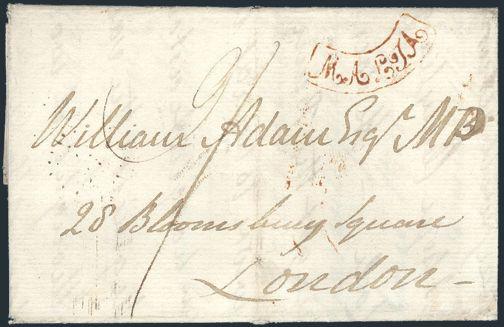 MALTA
William Adam Esqr. MP
28 Bloomsbury Square
London